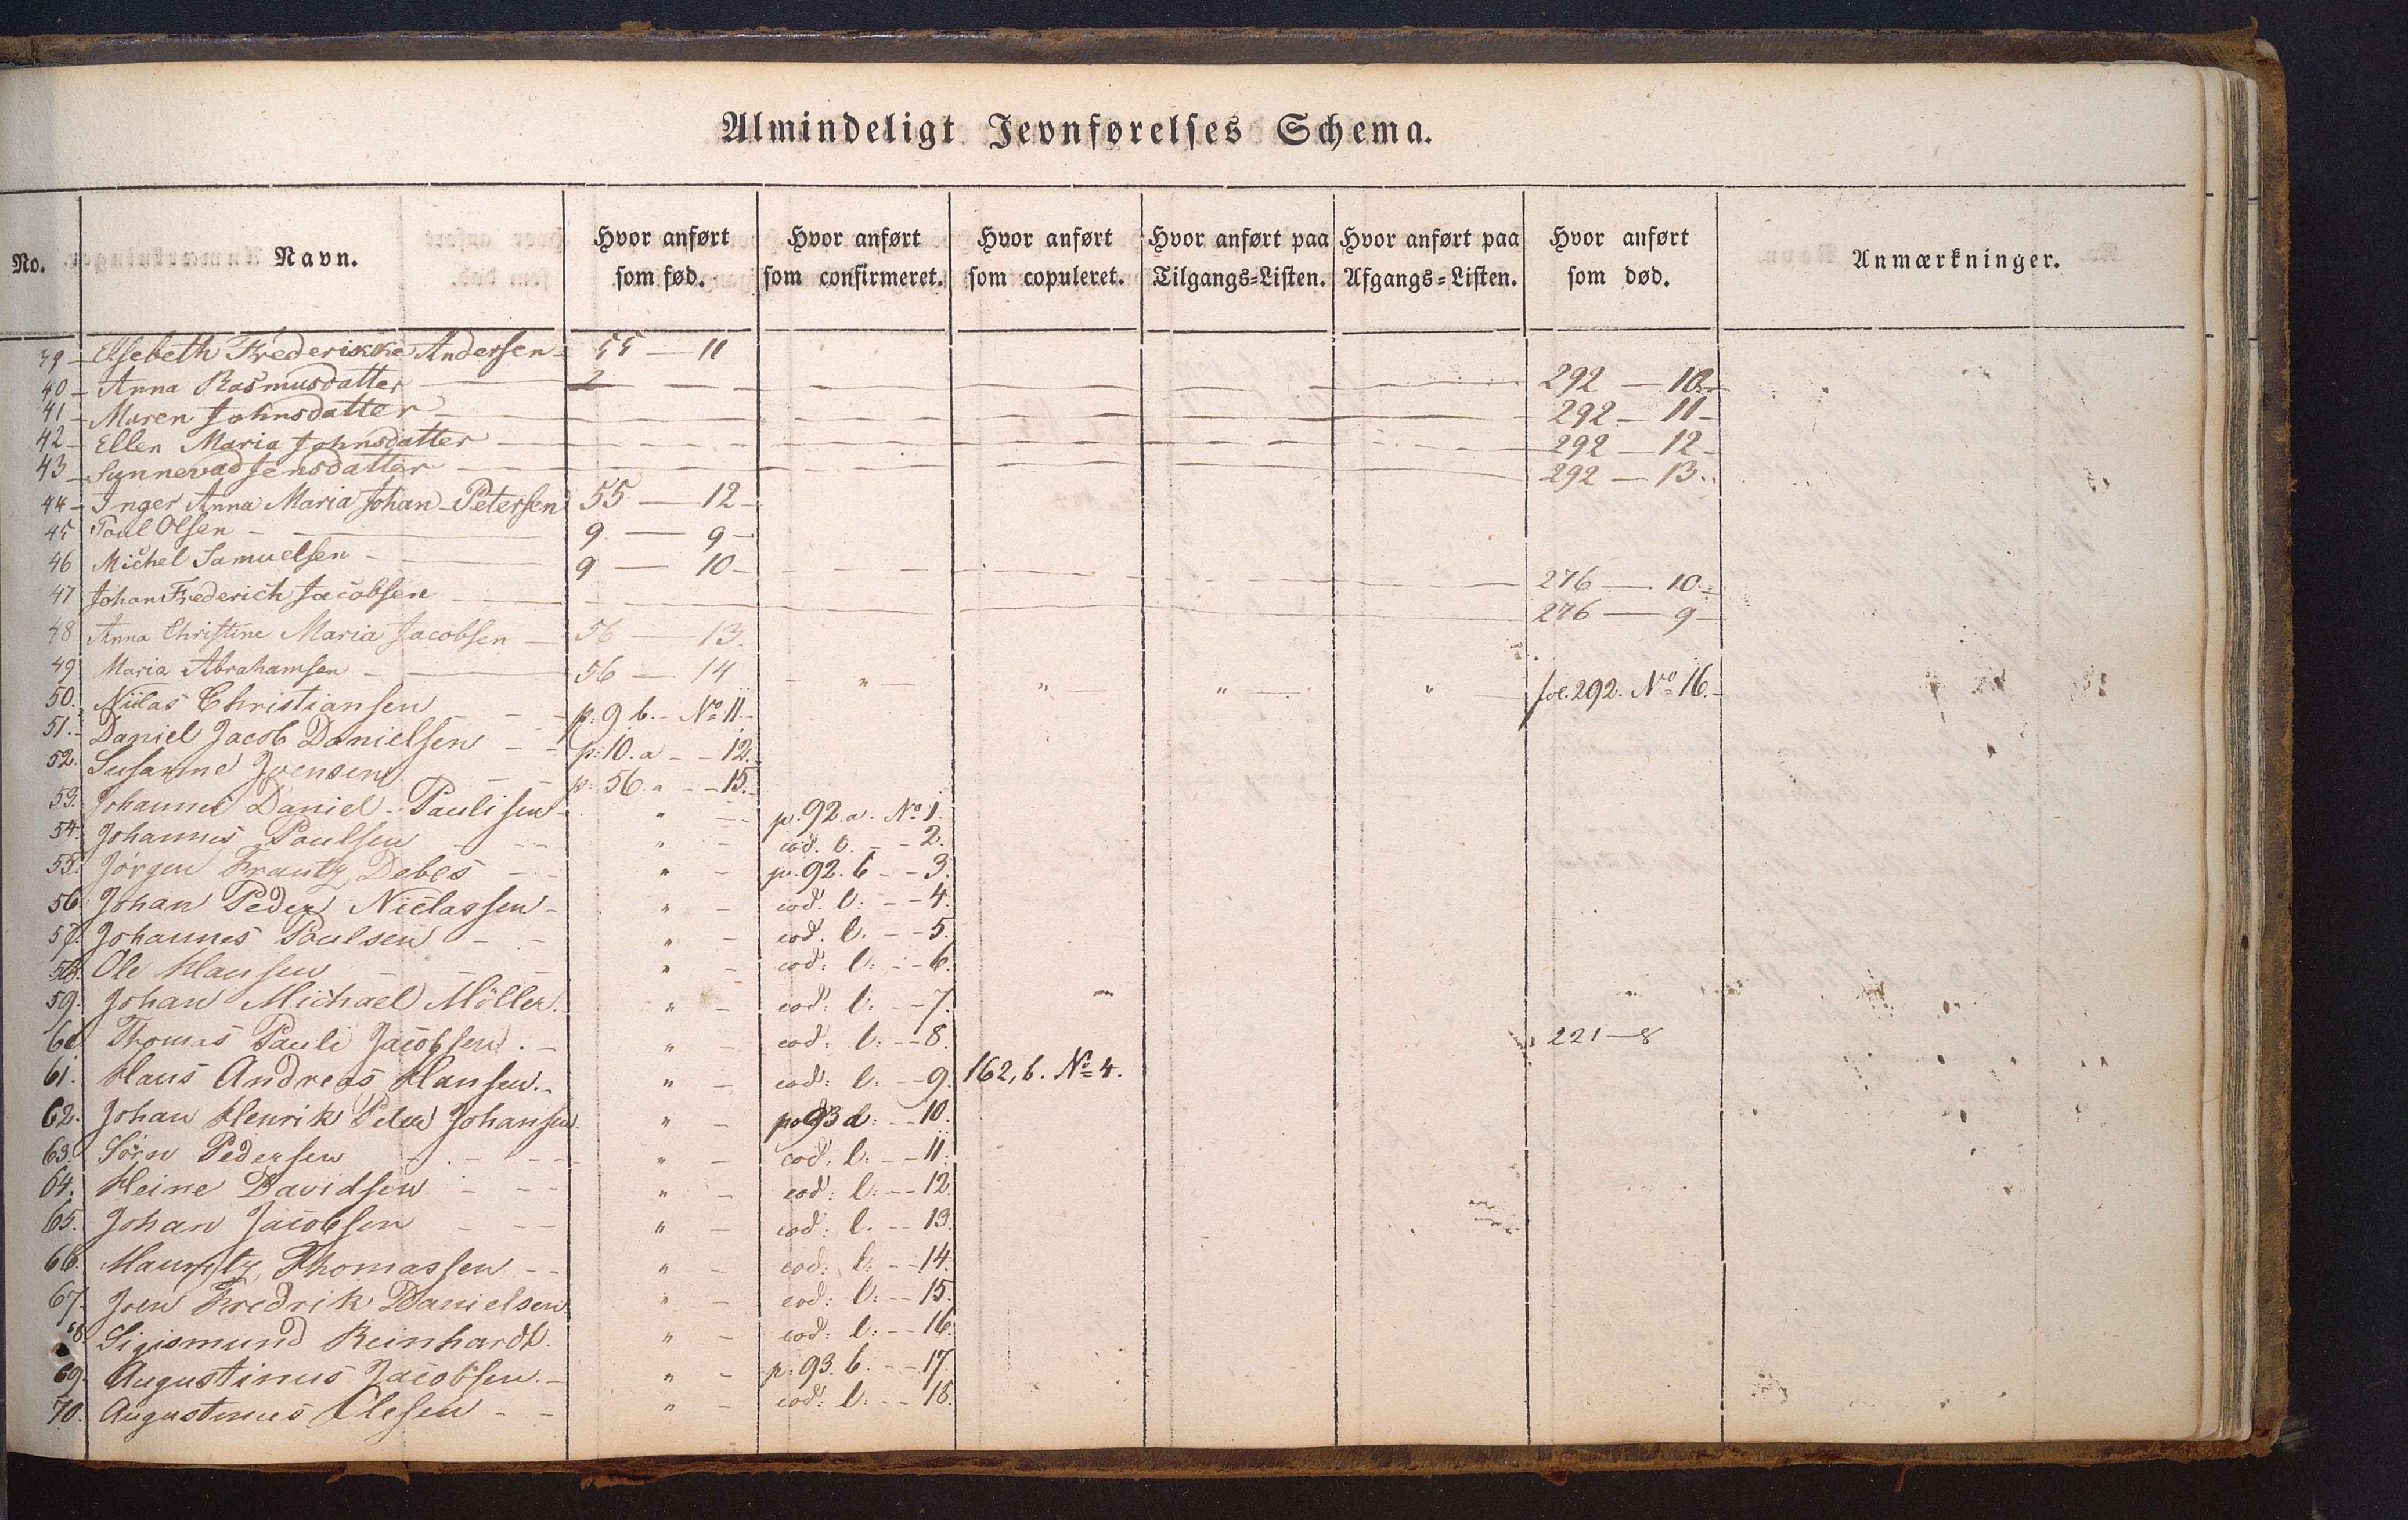 Almindeligt Jevnførelses Schema.
No. Navn. Hvor anført som fød. Hvor anført som confirmeret. Hvor anført som copuleret. Hvor anført paa Tilgangs=Listen. Hvor anført paa Afgangs=Listen. Hvor anført som død. Anmærkninger.
39 - Elsebeth Frederikke Andersen - 55 — 11
40 - Anna Rasmusdatter — 292 — 10 -
41 - Maren Johnsdatter — 292 - 11 -
42 - Ellen Maria Johnsdatter — 292 — 12 -
43 - Sunnevad Jensdatter — 292 — 13 -
44 - Inger Anna Maria Johan-Petersen 55 — 12 -
45 Poul Olsen — 9 — 9 -
46 Michel Samuelsen — 9 — 10 - 276 — 10 -
47 Johan Frederich Jacobsen — 276 — 9 -
48 Anna Christine Maria Jacobsen — 56 — 13.
49 Maria Abrahamsen — 56 — 14 - " — " — " — " — fol. 292. No 16. -
50. Niclas Christiansen - - p: 9 b. - No 11. -
51. - Daniel Jacob Danielsen - - p: 10. a - - 12.
52. Susanne Joensen - - p: 56. a - - 15.
53. Johannes Daniel Paulisen - " - p. 92. a. No 1.
54. Johannes Poulsen - - " - eod. l. - - 2.
55. Jørgen Frantz Debes - - " - p. 92. b - - 3.
56. Johan Peder Niclassen - " - eod. l: - - 4.
57. Johannes Poulsen - - " - eod. l. - - 5.
58. Ole Hansen - - - " - eod: l: - - 6.
59. Johan Michael Möller. " - eod: l: - - 7.
60 Thomas Pauli Jacobsen. - " - eod: l: - - 8. 221 — 8
61. Hans Andreas Hansen. - " - eod: l: - - 9. 162, b. No 4.
62. Johan Henrik Peter Johansen. " - p 93 a: - - 10.
63. Sörn Pedersen - - - " - eod: l: - - 11.
64. Heine Davidsen - - - " - eod: l: - - 12.
65. Johan Jacobsen - - - " - eod: l. - - 13.
66. Mauritz Thomassen - - " - eod: l: - - 14.
67. Joen Fredrik Danielsen. " - eod: l: - - 15.
68. Sigismund Reinhardt. " - eod: l: - - 16.
69. Augustinus Jacobsen. - " - p. 93. b. - - 17.
70. Augustinus Olesen - - " - eod: l: - - 18.